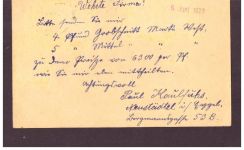 Werte Firma!
Bitte senden Sie mir
4 Pfund Grobschnitt Marke Wohl.
5 " Mittel " " "
zu dem Preise von 6300 per Pf
wie Sie mir den mittheilten.
Achtungsvoll
Paul Kaulfuhs,
Neustädtel i/ Erzgeb.
Bergmannsgasse 53 B.